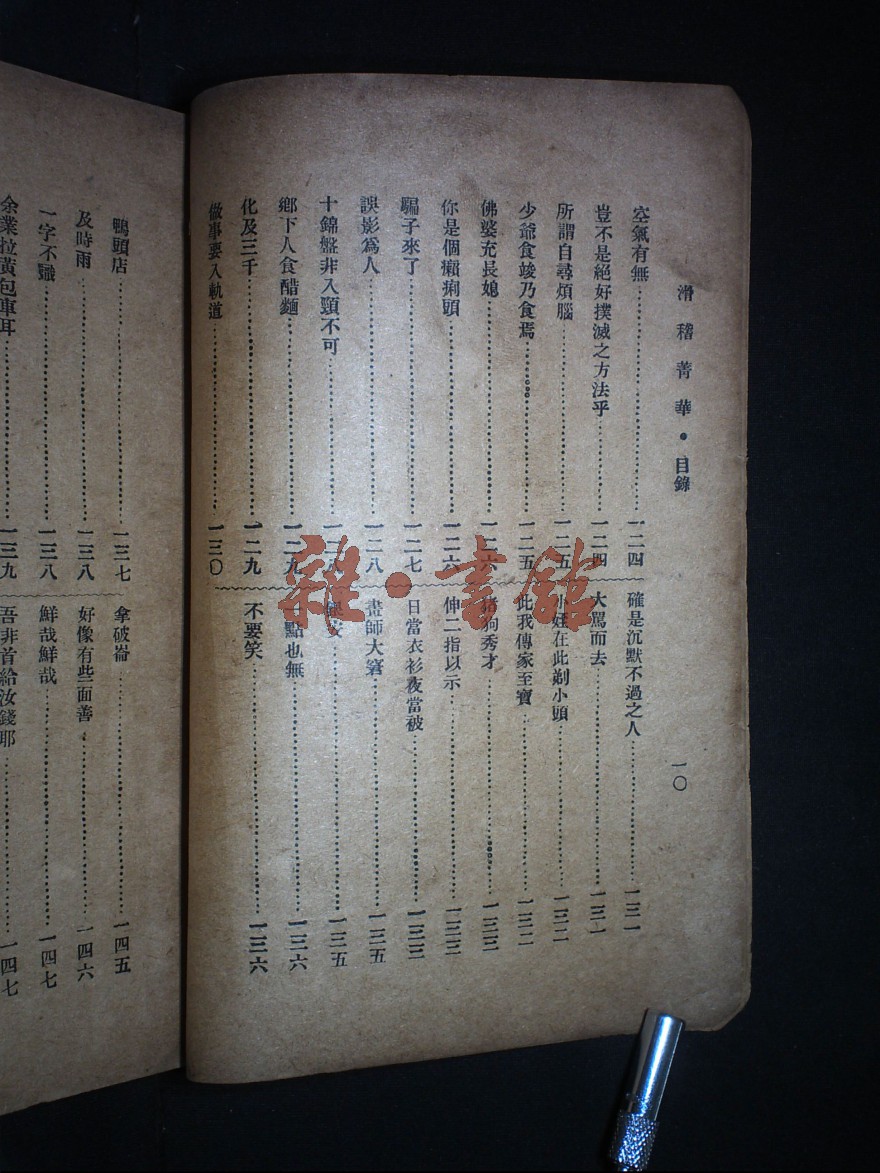 滑稽菁華•目錄
一〇
空氣有無……一二四
豈不是絕好撲滅之方法乎……一二四
所謂自尋煩腦……一二五
少爺食竣乃食焉……一二五
佛婆充長媳……一二六
你是個癩痢頭……一二六
騙子來了……一二七
誤影爲人……一二八
十錦盤非入頸不可……一二八
鄉下人食醋麵……一二九
化及三千……一二九
做事要入軌道……一三〇
確是沉默不過之人……一三一
大罵而去……一三一
小姓在此剃小頭……一三二
此我傳家至寶……一三二
豬狗秀才……一三三
伸二指以示……一三三
日當衣衫夜當被……一三三
畫師大窘……一三五
……一三五
一點也無……一三六
不要笑……一三六
鴨頭店……一三七
及時雨……一三八
一字不識……一三八
余業拉黃包車耳……一三九
拿破崙……一四五
好像有些面善……一四六
鮮哉鮮哉……一四七
吾非首給汝錢耶……一四七
雜•書館